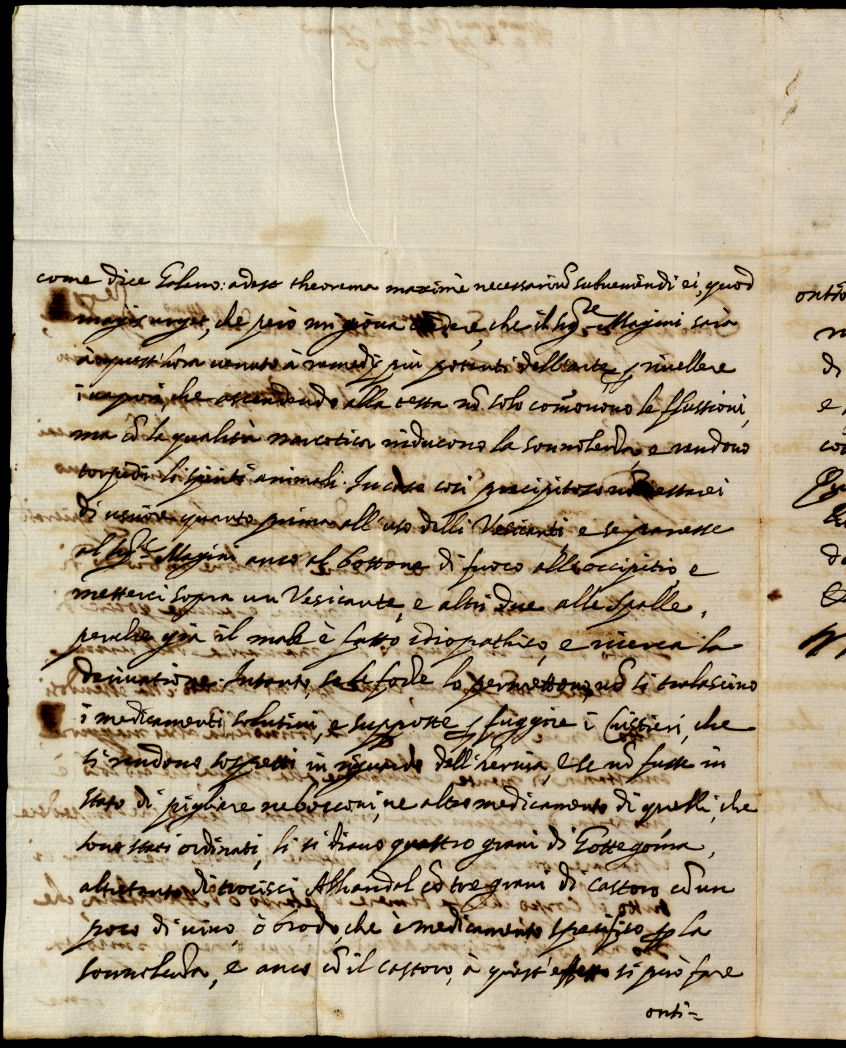 come dice Galeno: adest theorema maximè necessariũ subueniendi ei, quod
magis urget, che però mi gioua credere, che il Sig.re Magini sarà
à quest'hora uenuto à remedij più potenti dell'arte, p̱ riuellere
i uapori, che ascendendo alla testa nõ solo comõuono le flussioni,
ma cõ la qualità narcotica inducono la sonnolẽza, e rendono
torpidi li spiriti animali. In caso così precipitoso nõ starei
di uenire quanto prima all'uso delli Vesicanti e se paresse
al Sig.re Magini anco al bottone di fuoco all'occipitio, e
metterci sopra un Vesicante, e altri due alle spalle,
perche già il male è fatto idiopathico, e ricerca la
deriuatione. Intanto se le forze lo permettono, nõ si tralascino
i medicamenti solutiui, e supposte p̱ fuggire i Cristieri, che
si rendono sospetti in riguardo dell'hernia, e se nõ fusse in
stato di pigliare ne bocconi, ne altro medicamento di quelli, che
sono stati ordinati, li si diano quattro grani di Gottegõma,
altretanto di trocisci Alhandal cõ tre grani di castoro cõ un
poco di uino, ò brodo, che è medicamento specifico p̱ la
sonnolẽza, e anco cõ il castoro, à quest'effetto si può fare
onti=